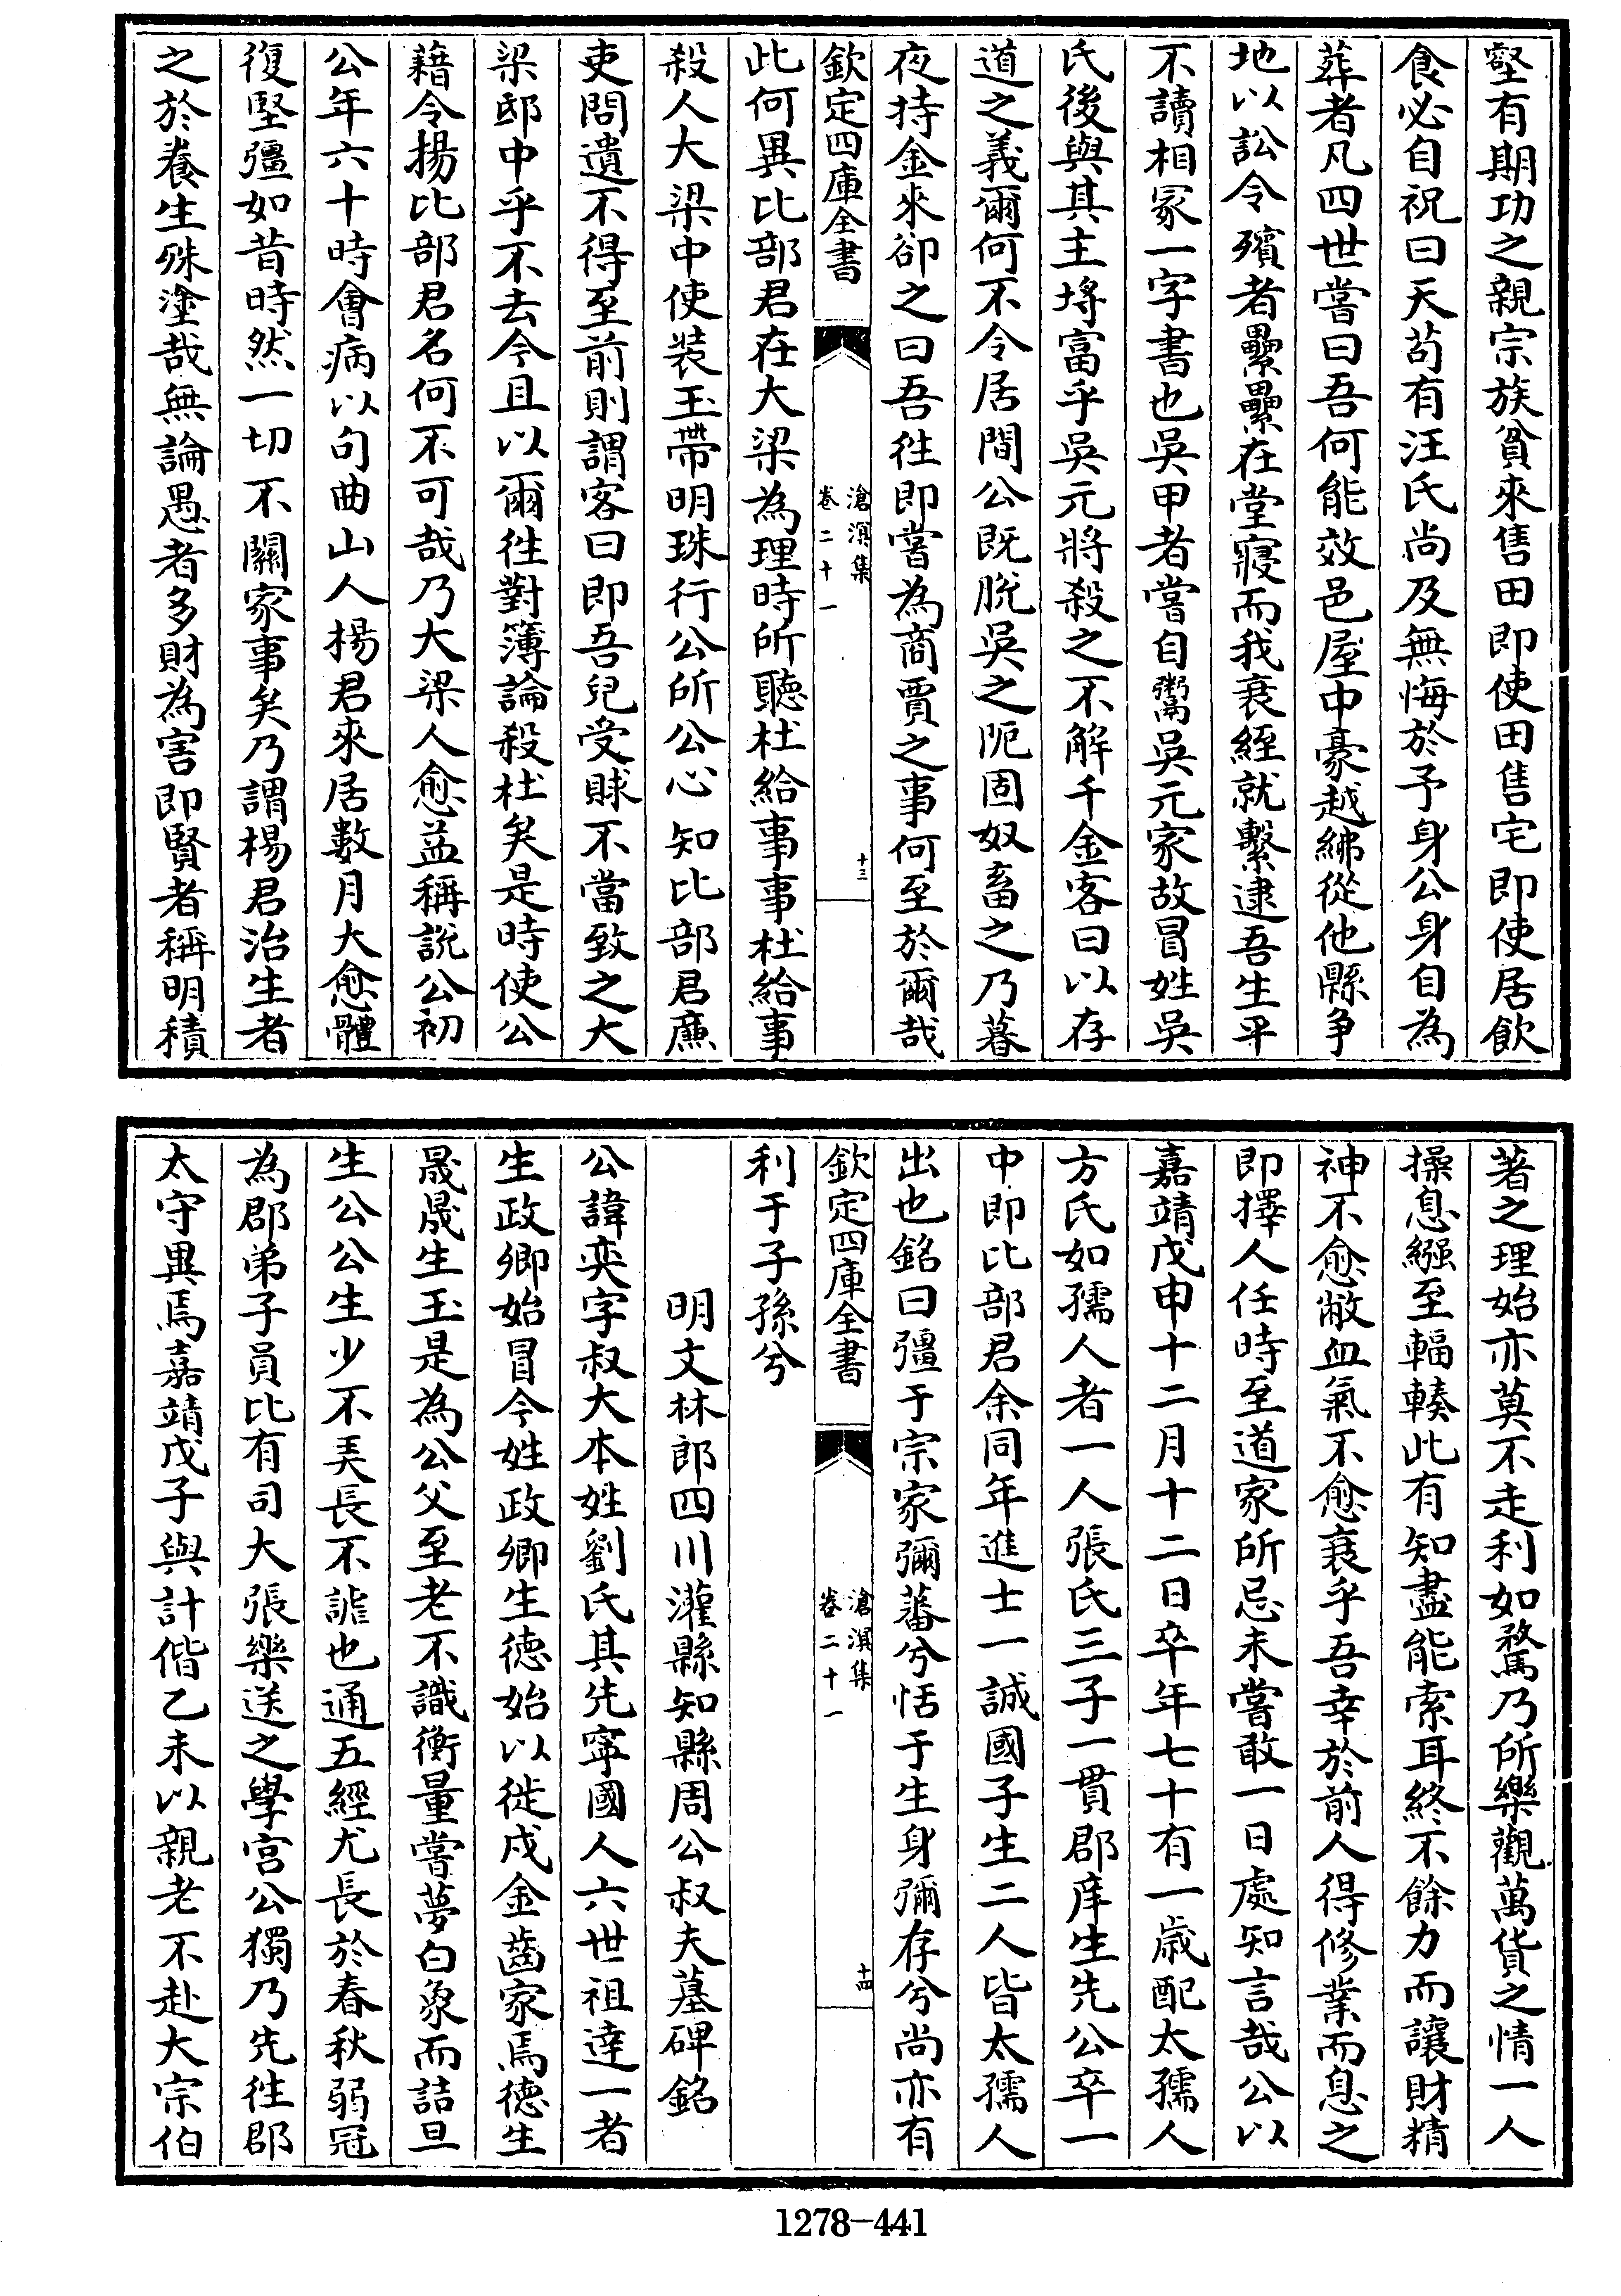 壑有期功之親宗族貧來售田即使田售宅即使居飲
食必自祝曰天苟有汪氏尚及無悔於予身公身自為
葬者凡四世嘗曰吾何能效邑屋中豪越紼從他縣争
地以訟令殯者纍纍在堂寢而我衰絰就繫逮吾生平
不讀相冢一字書也吳甲者嘗自鬻吳元家故冒姓吳
氏後與其主埓富乎吳元將殺之不解千金客曰以存
道之義爾何不令居間公既脫吳之阨固奴畜之乃暮
夜持金來卻之曰吾徃即嘗為商賈之事何至於爾哉
欽定四庫全書
滄溟集
卷二十一
十三
此何異比部君在大梁為理時所聽杜給事事杜給事
殺人大梁中使裝玉帶明珠行公所公心知比部君廉
吏問遺不得至前則謂客曰即吾兒受賕不當致之大
梁邸中乎不去今且以爾徃對簿論殺杜矣是時使公
藉令揚比部君名何不可哉乃大梁人愈益稱說公初
公年六十時會病以句曲山人楊君來居數月大愈體
復堅彊如昔時然一切不關家事矣乃謂楊君治生者
之於養生殊塗哉無論愚者多財為害即賢者稱明積
著之理始亦莫不走利如騖乃所樂觀萬貨之情一人
操息繈至輻輳此有知盡能索耳終不餘力而讓財精
神不愈敝血氣不愈衰乎吾幸於前人得修業而息之
即擇人任時至道家所忌未嘗敢一日處知言哉公以
嘉靖戊申十二月十二日卒年七十有一歲配太孺人
方氏如孺人者一人張氏三子一貫郡庠生先公卒一
中即比部君余同年進士一誠國子生二人皆太孺人
出也銘曰彊于宗家彌蕃兮恬于生身彌存兮尚亦有
欽定四庫全書
滄溟集
卷二十一
十四
利于子孫兮
明文林郎四川灌縣知縣周公叔夫墓碑銘
公諱奕字叔大本姓劉氏其先寧國人六世祖達一者
生政卿始冒今姓政卿生德始以徙戍金齒家焉德生
晟晟生玉是為公父至老不識衡量嘗夢白象而詰旦
生公公生少不弄長不謔也通五經尤長於春秋弱冠
為郡弟子員比有司大張樂送之學宫公獨乃先徃郡
太守異焉嘉靖戊子與計偕乙未以親老不赴大宗伯
1278-441